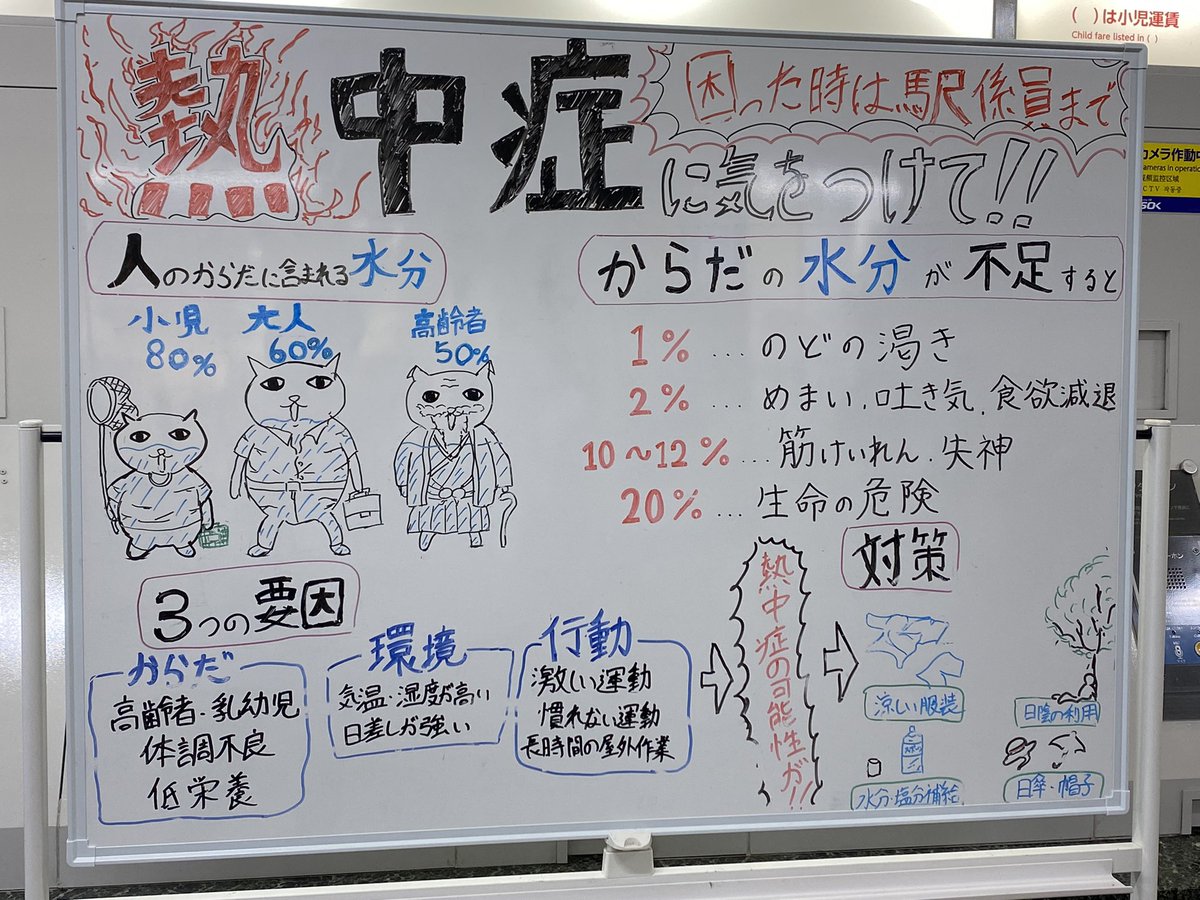 ( )は小児運賃
Child fare listed in ( )
熱中症に気をつけて!!
困った時は駅係員まで
カメラ作動中
ameras in operation
CTV
SOK
人のからだに含まれる水分
小児
80%
大人
60%
高齢者
50%
からだの水分が不足すると
1% … のどの渇き
2% … めまい、吐き気、食欲減退
10～12% … 筋けいれん、失神
20% … 生命の危険
3つの要因
からだ
高齢者・乳幼児
体調不良
低栄養
環境
気温・湿度が高い
日差しが強い
行動
激しい運動
慣れない運動
長時間の屋外作業
熱中症の可能性が!!
対策
涼しい服装
日陰の利用
水分・塩分補給
日傘・帽子